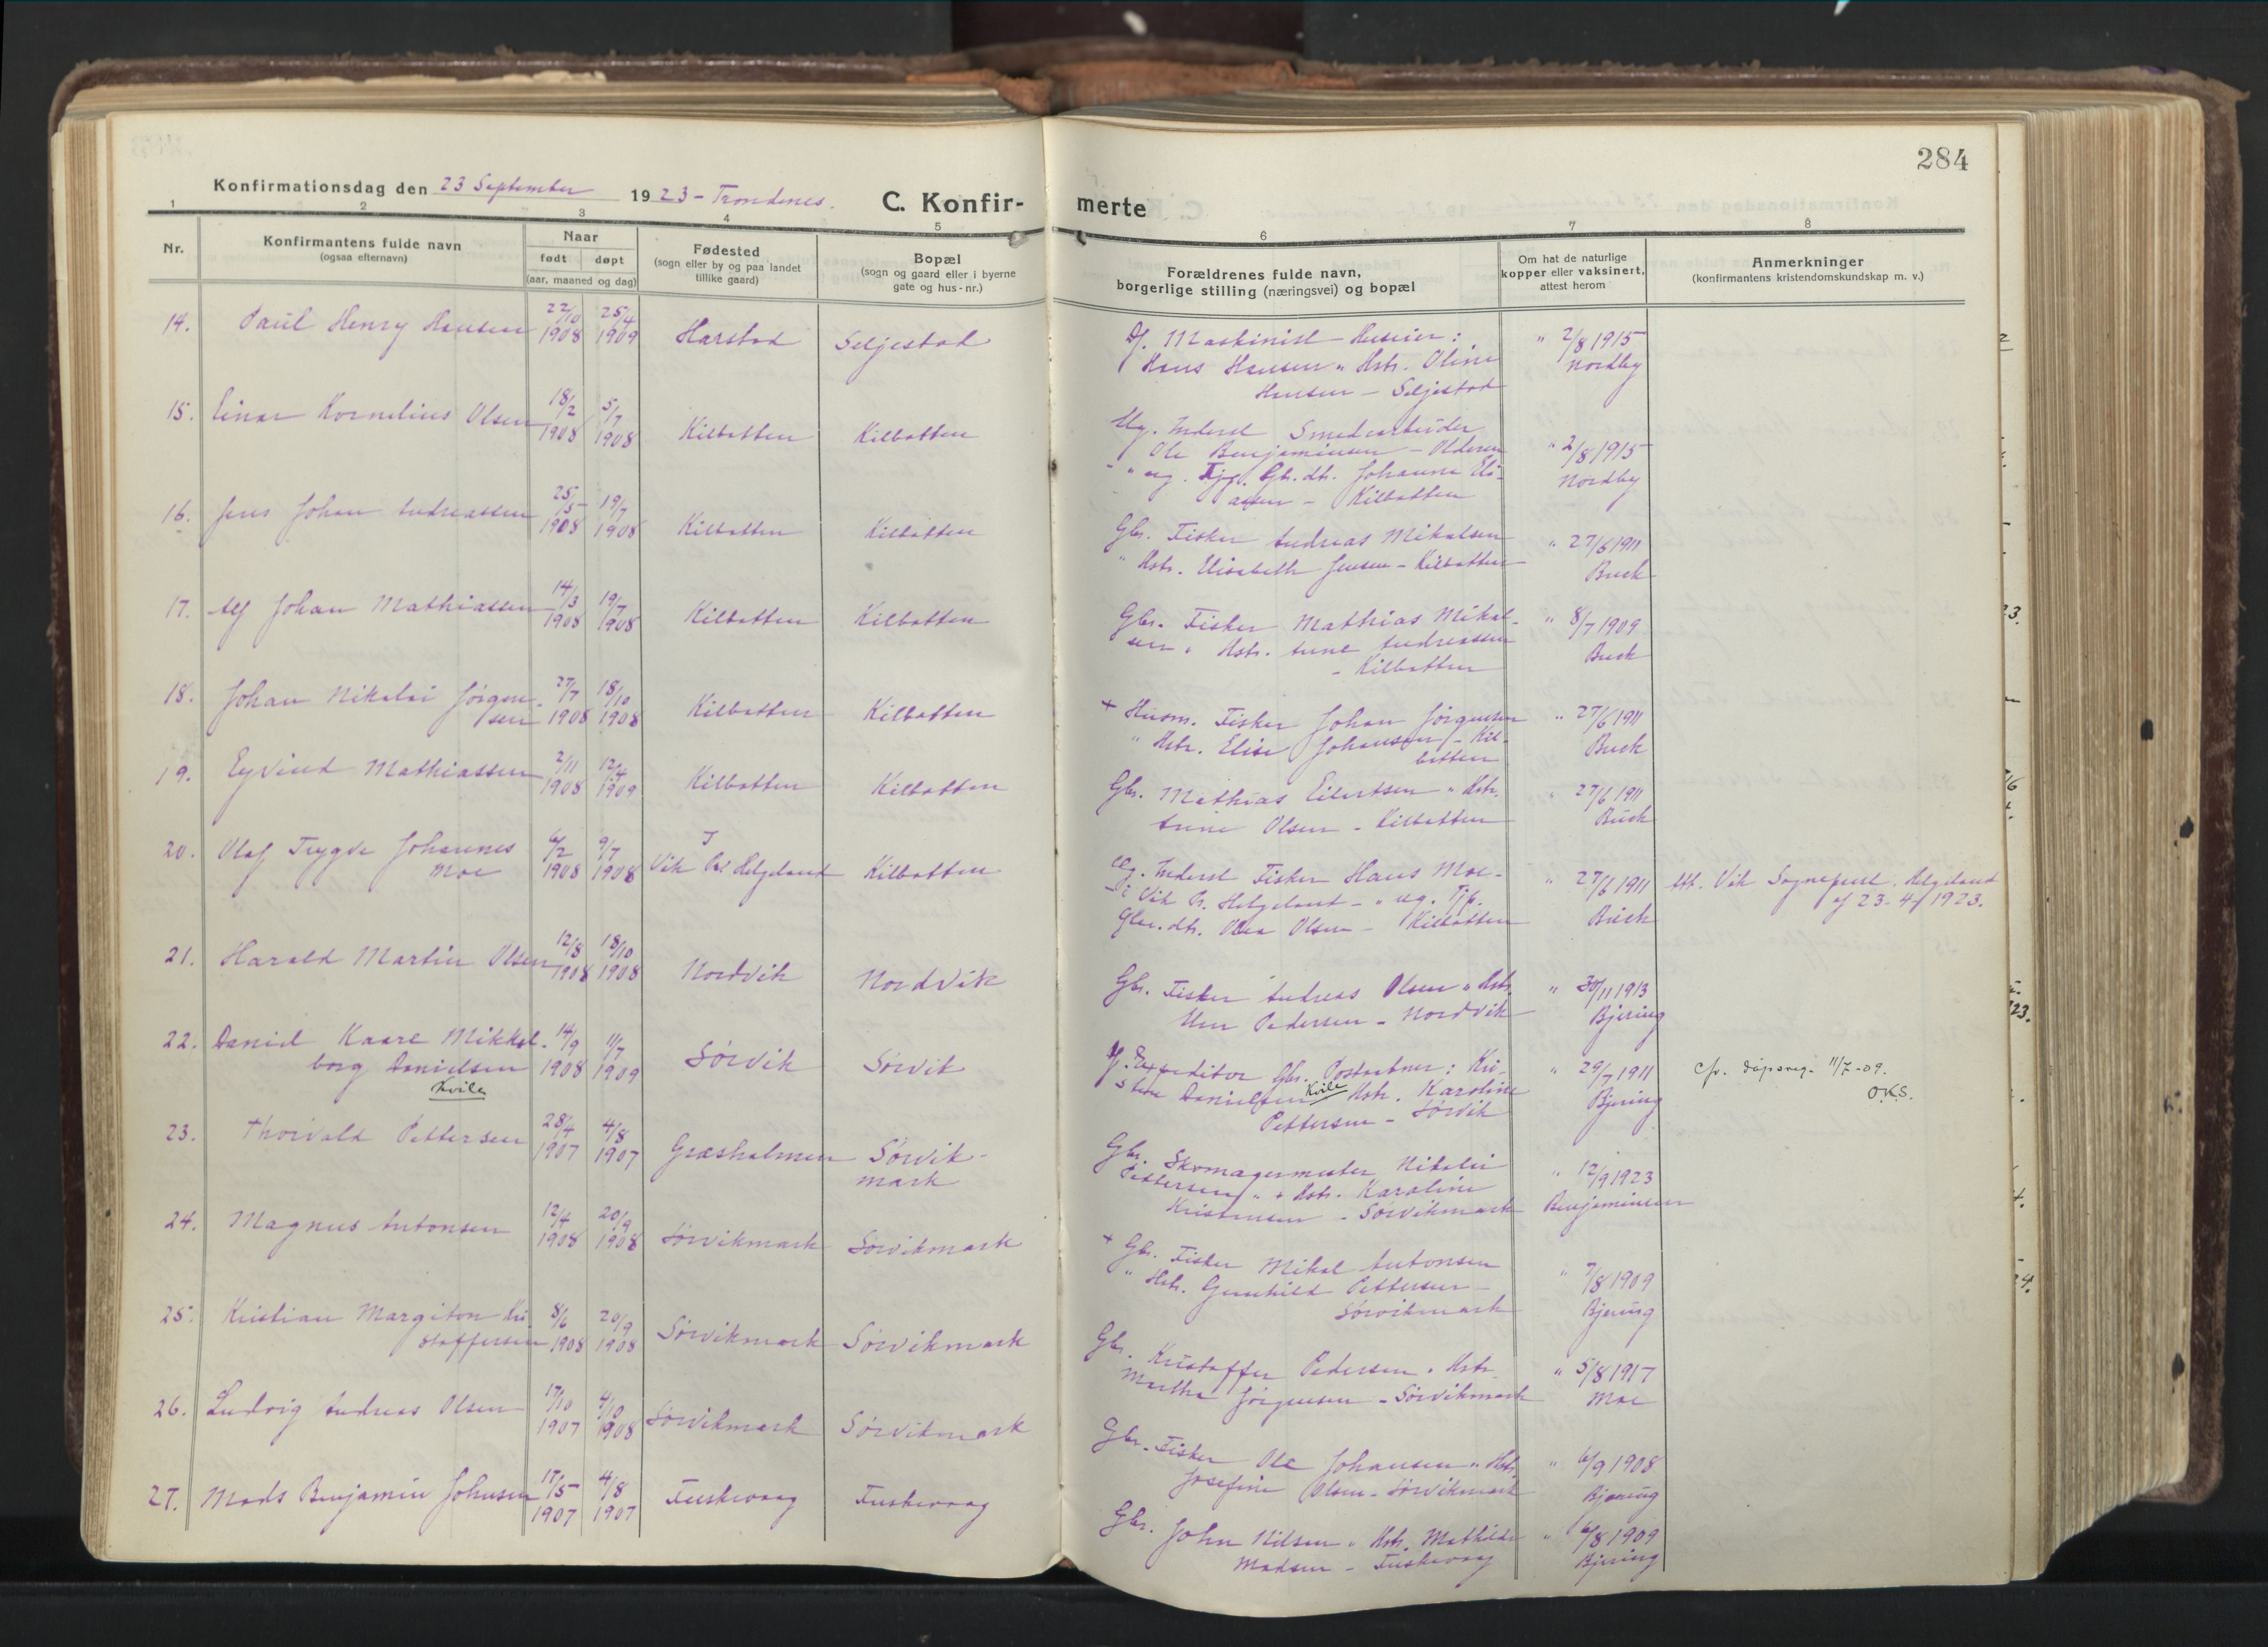 284
Konfirmationsdag den 23 September 1923 - Trondenes.
C. Konfirmerte
1 2 3 4 5 6 7 8
Nr.
Konfirmantens fulde navn
(ogsaa efternavn)
Naar
født døpt
(aar, maaned og dag)
Fødested
(sogn eller by og paa landet
tillike gaard)
Bopæl
(sogn og gaard eller i byerne
gate og hus-nr.)
Forældrenes fulde navn,
borgerlige stilling (næringsvei) og bopæl
Om hat de naturlige
kopper eller vaksinert,
attest herom
Anmerkninger
(konfirmantens kristendomskundskap m. v.)
14. Paul Henry Hansen 22/10 1908 25/4 1909 Harstad Seljestad
Maskinist Huseier:
Hans Hansen " Hstr. Oline
Hansen - Seljestad
" 2/8 1915
Nordby
15. Einar Kornelius Olsen 18/2 1908 5/7 1908 Kilbotten Kilbotten
Ug. Inderst Smedarbeider
Ole Benjaminsen - Olderen
" ug. Tjp. Gbr.dtr. Johanna Eli-
assen - Kilbotten
" 2/8 1915
Nordby
16. Jens Johan Andreassen 25/5 1908 19/7 1908 Kilbotten Kilbotten
Gbr. Fisker Andreas Mikalsen
" Hstr. Elisabeth Jensen - Kilbotten
" 27/6 1911
Buck
17. Alf Johan Mathiassen 14/3 1908 19/7 1908 Kilbotten Kilbotten
Gbr. Fisker Mathias Mikal-
sen " Hstr. Anne Andreassen
- Kilbotten
" 8/7 1909
Buck
18. Johan Nikolai Jörgen-
sen 27/7 1908 18/10 1908 Kilbotten Kilbotten
+ Husm. Fisker Johan Jörgensen
" Hstr. Elise Johansen - Kil-
botten
" 27/6 1911
Buck
19. Eyvind Mathiassen 2/11 1908 12/4 1909 Kilbotten Kilbotten
Gbr. Mathias Eilertsen " Hstr.
Anna Olsen - Kilbotten
" 27/6 1911
Buck
20. Olaf Trygve Johannes
Moe 6/2 1908 9/7 1908 Vik Helgeland Kilbotten
Ug. Inderst Fisker Hans Moe -
i Vik P. Helgeland - " ug. Tjp.
Gbr.dtr. Olea Olsen - Kilbotten
" 27/6 1911
Buck
Att. Vik Sogneprest. Helgeland
af 23-4/1923.
21. Harald Martin Olsen 12/8 1908 18/10 1908 Nordvik Nordvik
Gbr. Fisker Andreas Olsen " Hstr.
Pedersen - Nordvik
" 30/11 1913
Bjering
22. Daniel Kaare Mikkel-
borg Danielsen
Kvile
14/9 1908 11/7 1909 Sörvik Sörvik
Expeditor Gbr. Postaabner: Kri-
stian Danielsen Kvile Hstr. Karoline
Pettersen - Sörvik
" 29/7 1911
Bjering
cfr. dåpsreg. 11/7-09.
O.K.S.
23. Thorvald Pettersen 28/4 1907 4/8 1907 Græsholmen Sörvik-
mark
Gbr. Skomagermester Nikolai
Pettersen " + Hstr. Karoline
Kristensen - Sörvikmark
" 12/9 1923
Benjaminsen
24. Magnus Antonsen 12/4 1908 20/9 1908 Sörvikmark Sörvikmark
+ Gbr. Fisker Mikal Antonsen
" Hstr. Gunhild Pettersen -
Sörvikmark
" 7/8 1909
Bjering
25. Kristian Margiton Kri-
stoffersen 8/6 1908 20/9 1908 Sörvikmark Sörvikmark
Gbr. Kristoffer Pedersen " Hstr.
Martha Jörgensen - Sörvikmark
" 5/8 1917
Moe
26. Ludvig Andreas Olsen 17/10 1907 4/10 1908 Sörvikmark Sörvikmark
Gbr. Fisker Ole Johansen " Hstr.
Josefine Olsen - Sörvikmark
" 6/9 1908
Bjering
27. Mads Benjamin Johnsen 17/5 1907 4/8 1907 Fuskevaag Fuskevaag
Gbr. John Nilsen " Hstr. Mathilde
Madsen - Fuskevaag
" 6/8 1909
Bjering